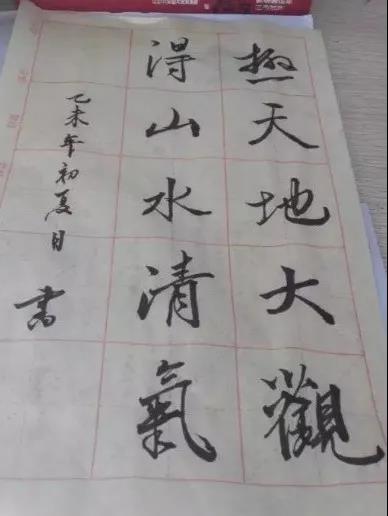 極天地大觀
得山水清氣
乙未年初夏日 書